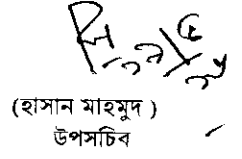 (হাসান মাহমুদ )
উপসচিব